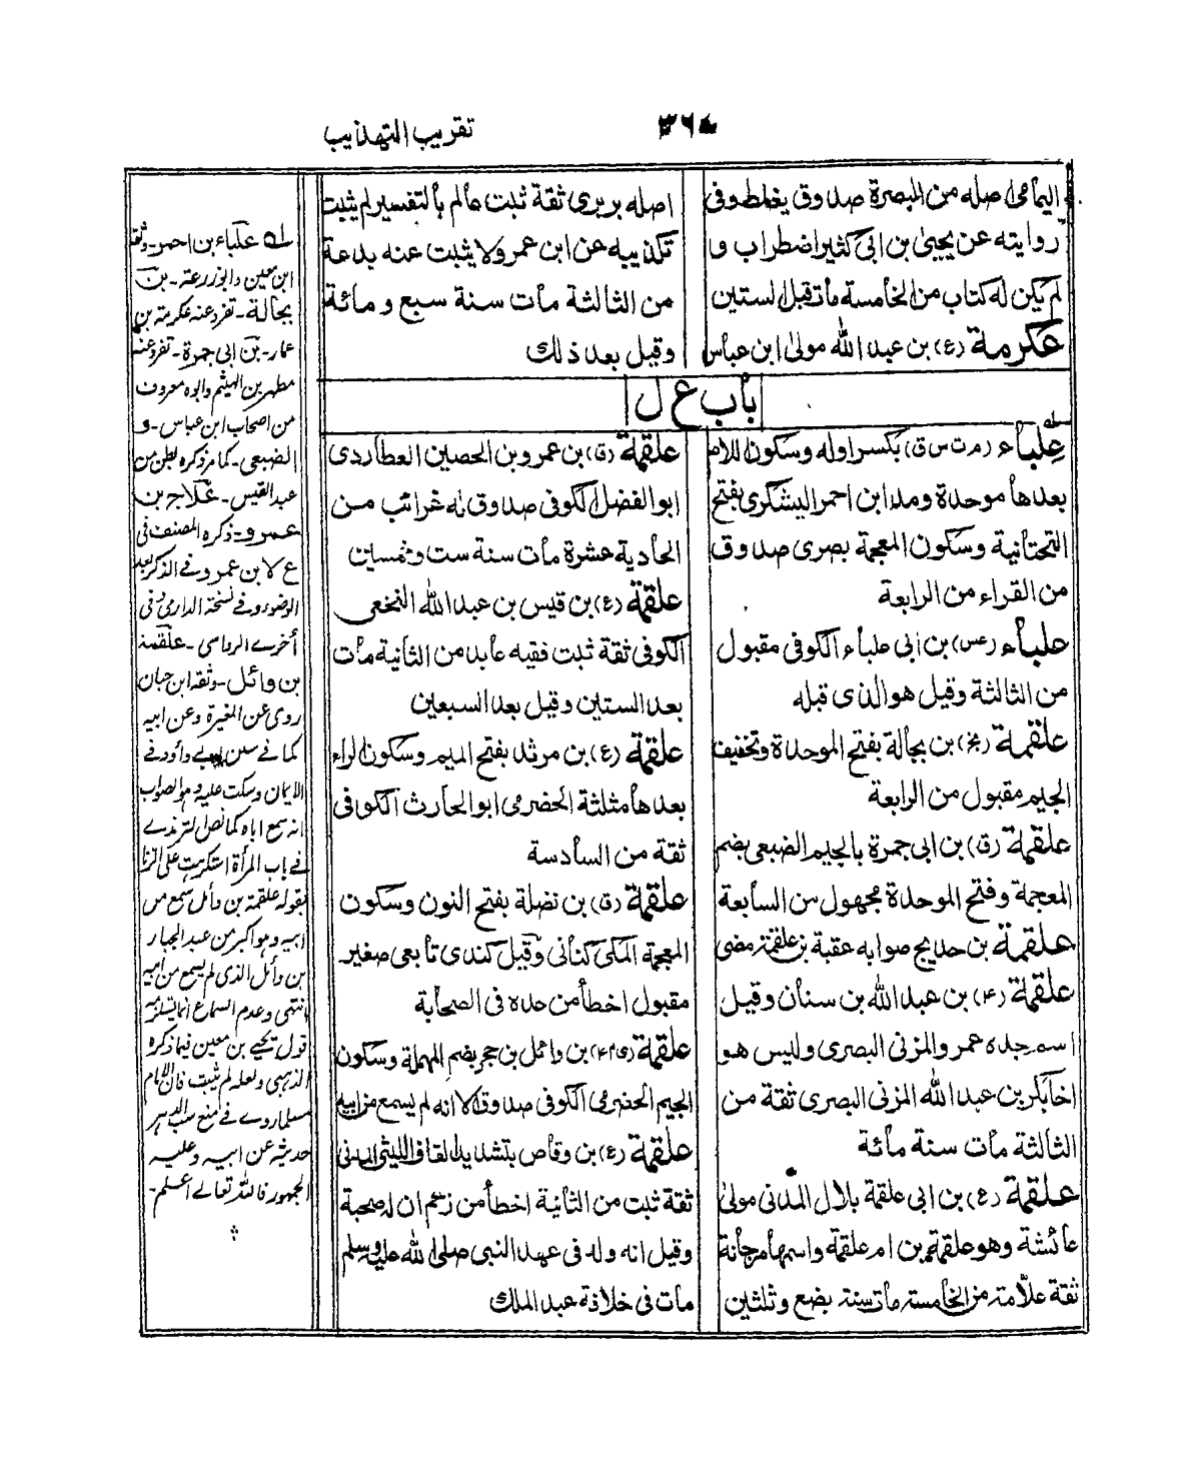 تقريب التهذيب
اليمامى اصله من البصرة صدوق يغلط وفى
روايته عن يحيى بن ابى كثير اضطراب و
لم يكن له كتاب من الخامسة مات قبل الستين
عكرمة (ع) بن عبد الله مولى ابن عباس
اصله بربرى ثقة ثبت عالم بالتفسير لم يثبت
تكذيبه عن ابن عمر ولا يثبت عنه بدعة
من الثالثة مات سنة سبع ومائة
وقيل بعد ذلك
باب ع ل
علباء (م ت س ق) بكسر اوله وسكون اللام
بعدها موحدة ومد ابن احمر اليشكرى بفتح
التحتانية وسكون المعجمة بصرى صدوق
من القراء من الرابعة
علباء (عس) بن ابى علباء الكوفى مقبول
من الثالثة وقيل هو الذى قبله
علقمة (بخ) بن بجالة بفتح الموحدة وتخفيف
الجيم مقبول من الرابعة
علقمة (ق) بن ابى جمرة بالجيم الضبعى بضم
المعجمة وفتح الموحدة مجهول من السابعة
علقمة بن حديج صوابه عقبة بن علقمة مضى
علقمة (۴) بن عبد الله بن سنان وقيل
اسم جده عمرو المزنى البصرى وليس هو
اخا بكر بن عبد الله المزنى البصرى ثقة من
الثالثة مات سنة مائة
علقمة (ع) بن ابى علقمة بلال المدنى مولى
عائشة وهو علقمة بن ام علقمة واسمها مرجانة
ثقة علامة من الخامسة مات سنة بضع وثلثين
علقمة (ق) بن عمرو بن الحصين العطاردى
ابو الفضل الكوفى صدوق له غرائب من
الحادية عشرة مات سنة ست وخمسين
علقمة (ع) بن قيس بن عبد الله النخعى
الكوفى ثقة ثبت فقيه عابد من الثانية مات
بعد الستين وقيل بعد السبعين
علقمة (ع) بن مرثد بفتح الميم وسكون الراء
بعدها مثلثة الحضرمى ابو الحارث الكوفى
ثقة من السادسة
علقمة (ق) بن نضلة بفتح النون وسكون
المعجمة المكى كنانى وقيل كندى تابعى صغير
مقبول اخطأ من عده فى الصحابة
علقمة بن وائل بن حجر بضم المهملة وسكون
الجيم الحضرمى الكوفى صدوق الا انه لم يسمع من ابيه
علقمة (ع) بن وقاص بتشديد القاف الليثى المدنى
ثقة ثبت من الثانية اخطأ من زعم ان له صحبة
وقيل انه ولد فى عهد النبى صلى الله عليه وسلم
مات فى خلافة عبد الملك
له علباء بن احمر - وثقه
ابن معين وابو زرعة - بن
بجالة - تفرد عنه عكرمة بن
عمار - بن ابى جمرة - تفرد عنه
مطهر بن الهيثم وابوه معروف
من اصحاب ابن عباس - و
الضبعى - كما مر ذكره بطن من
عبد القيس - علاج بن
عمرو - ذكره المصنف فى
ع لا بن عمرو فے الذكر بعد
الوضوء وفے نسخة الدارمى وفى
أخرے الرداسى - علقمة
بن وائل - وثقه ابن حبان
روى عن المغيرة وعن ابيه
كما فے سنن ابے داؤد فے
الايمان وسكت عليه وهو الصواب
انه سمع اباه كما نص الترمذے
فے باب المرأة استكرهت على الزنا
بقوله علقمة بن وائل سمع من
ابيه وهو اكبر من عبد الجبار
بن وائل الذى لم يسمع من ابيه
انتهى وعدم السماع انما
قول يحيے بن معين فيما ذكره
الذهبى ولعله لم يثبت فان الامام
مسلما روے فے منع سب الدهر
حديثه عن ابيه وعليه
الجمهور فالله تعالے اعلم -